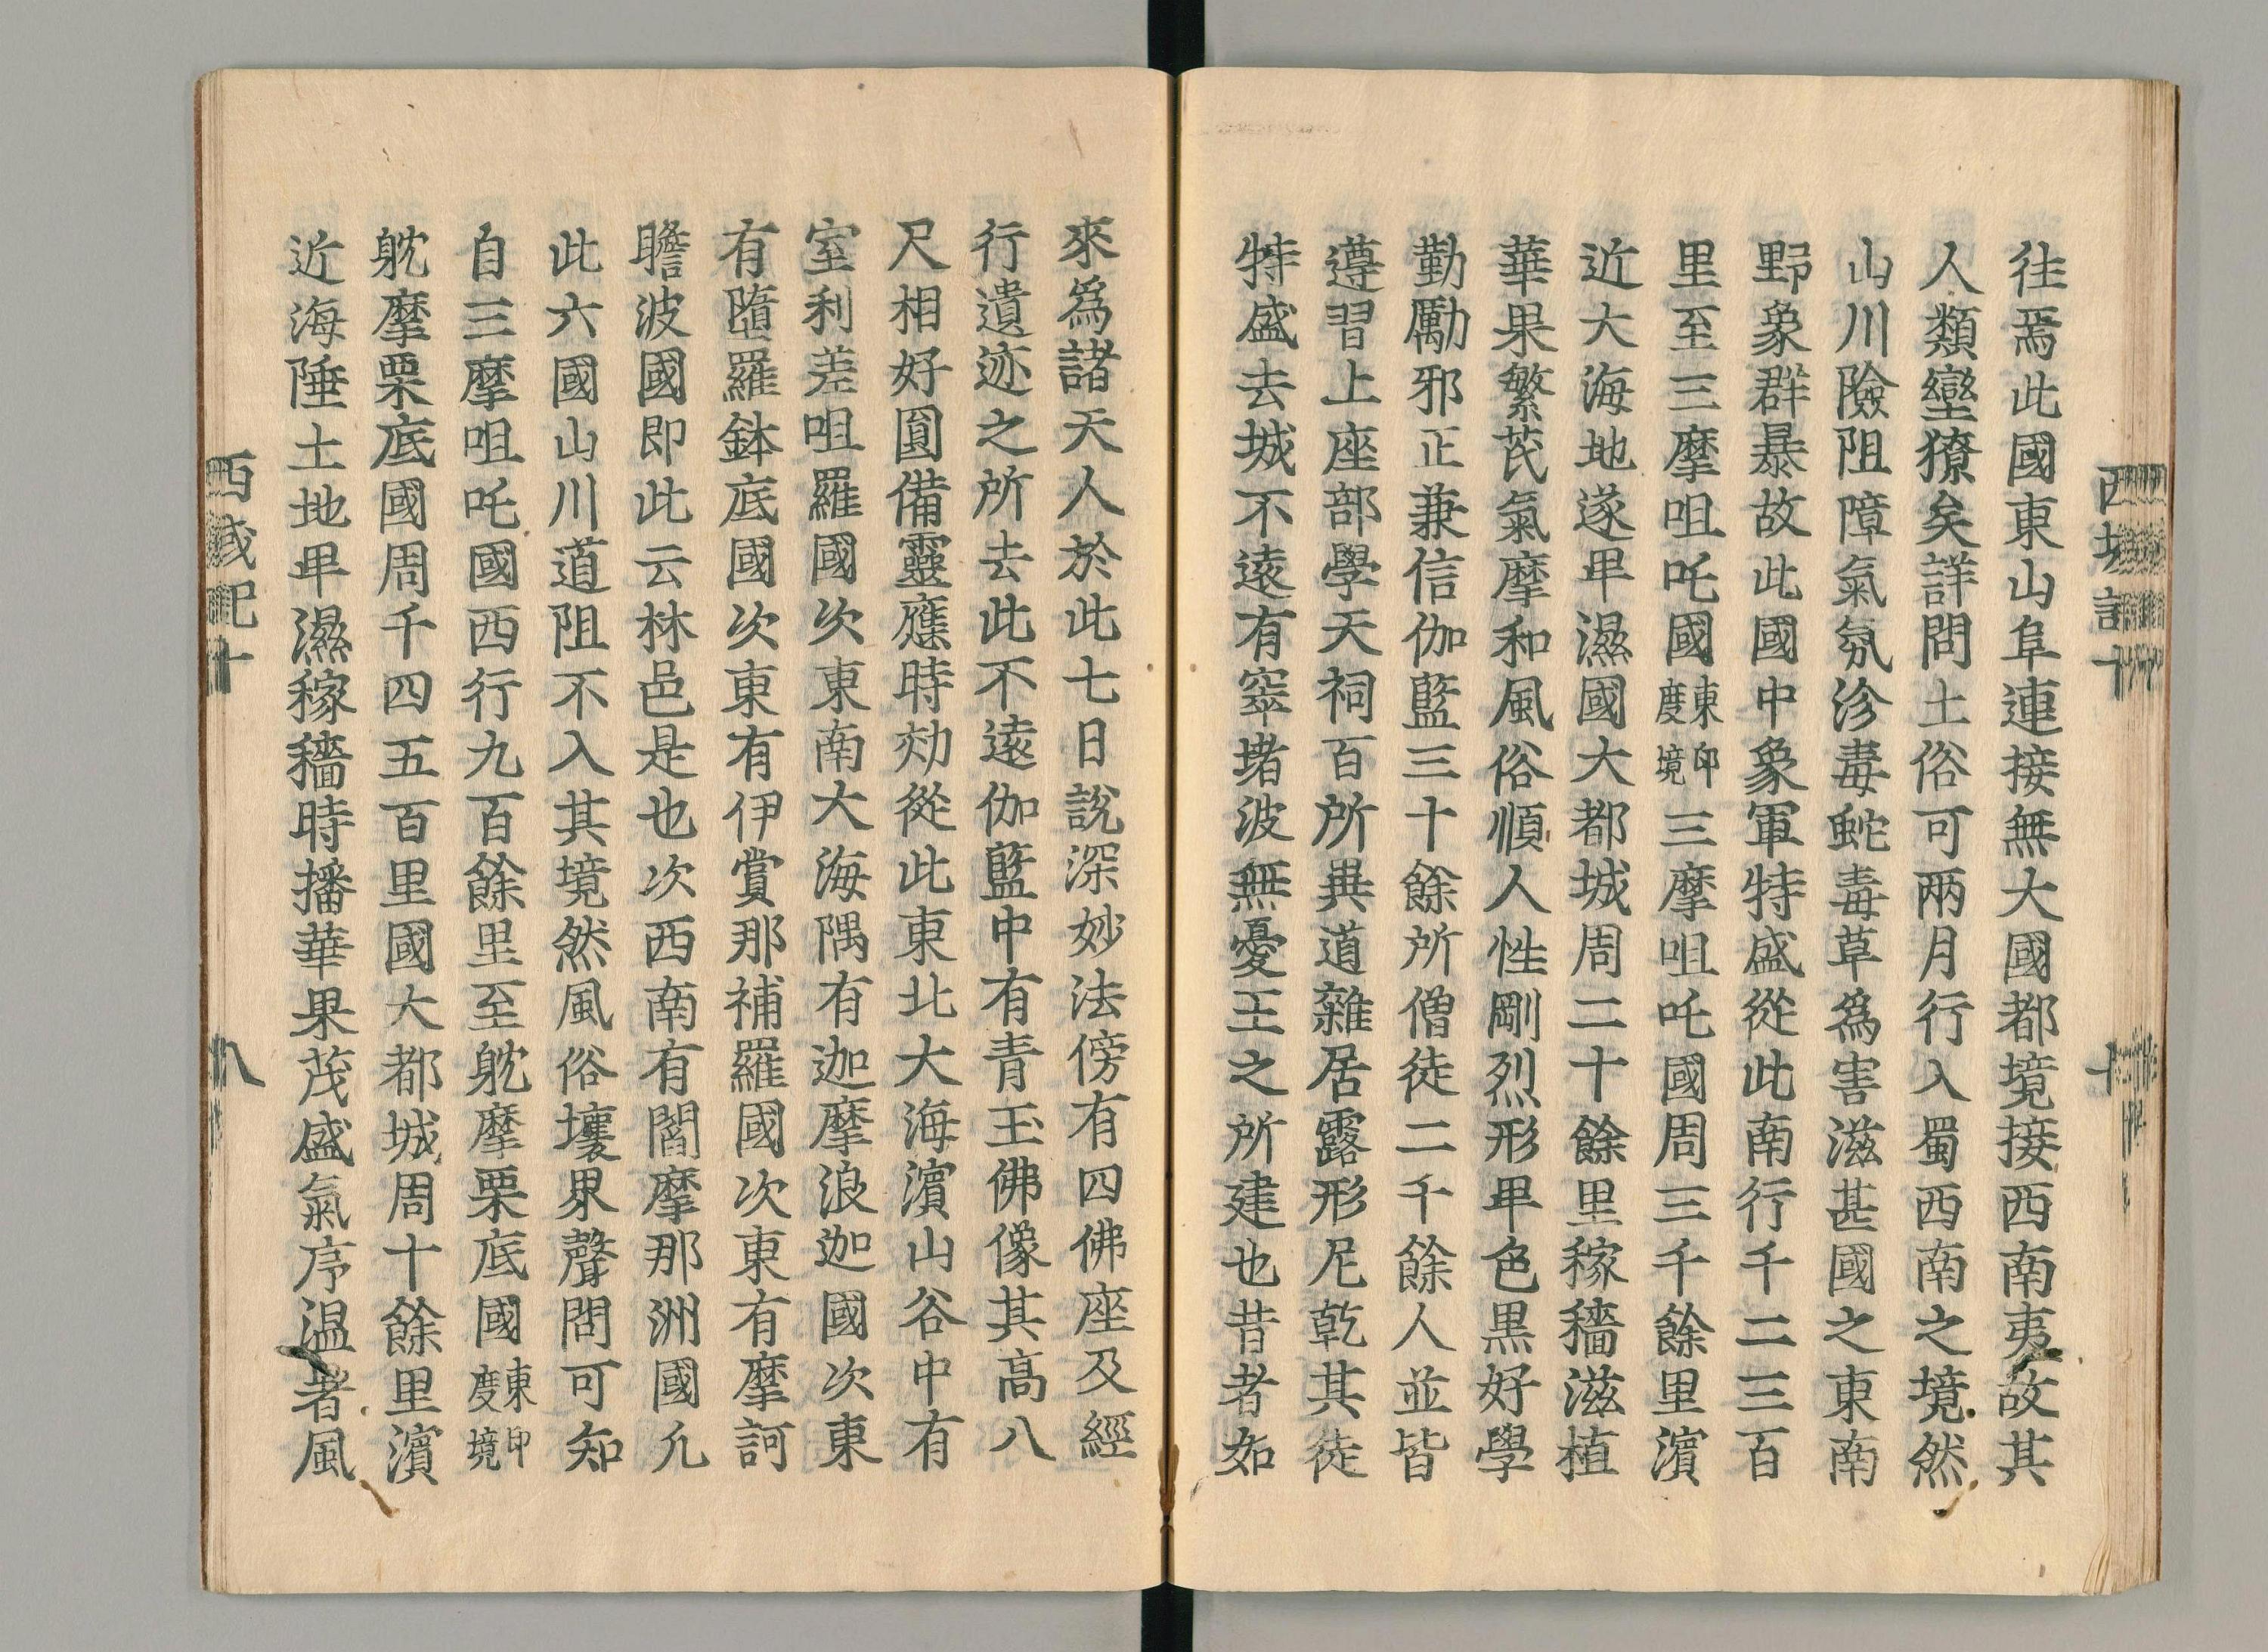 往焉此國東山阜連接無大國都境接西南夷故其
人類蠻獠矣詳問土俗可兩月行入蜀西南之境然
山川險阻障氣氛沴毒蛇毒草爲害滋甚國之東南
野象群暴故此國中象軍特盛從此南行千二三百
里至三摩呾吒國東印度境三摩呾吒國周三千餘里濱
近大海地遂卑濕國大都城周二十餘里稼穡滋植
華果繁茂氣序和風俗順人性剛烈形卑色黑好學
勤勵邪正兼信伽藍三十餘所僧徒二千餘人並皆
遵習上座部學天祠百所異道雜居露形尼乾其徒
特盛去城不遠有窣堵波無憂王之所建也昔者如
來爲諸天人於此七日說深妙法傍有四佛座及經
行遺迹之所去此不遠伽藍中有青玉佛像其高八
尺相好圓備靈應時効從此東北大海濱山谷中有
室利差呾羅國次東南大海隅有迦摩浪迦國次東
有墮羅鉢底國次東有伊賞那補羅國次東有摩訶
瞻波國即此云林邑是也次西南有閻摩那洲國凢
此六國山川道阻不入其境然風俗壤界聲問可知
自三摩呾吒國西行九百餘里至躭摩栗底國東印度境
躭摩栗底國周千四五百里國大都城周十餘里濱
近海陲土地卑濕稼穡時播華果茂盛氣序温暑風
西域記十
八